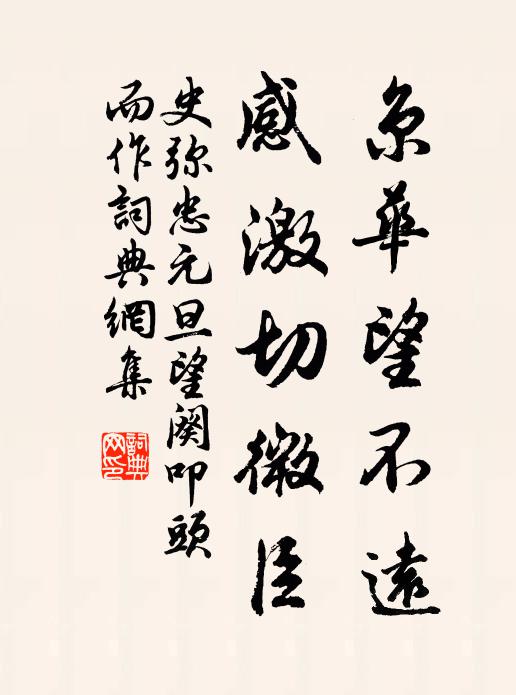 京華望不遠
感激切微臣
史弥忠元旦望闕叩頭
而作詞典網集
詞典
网印